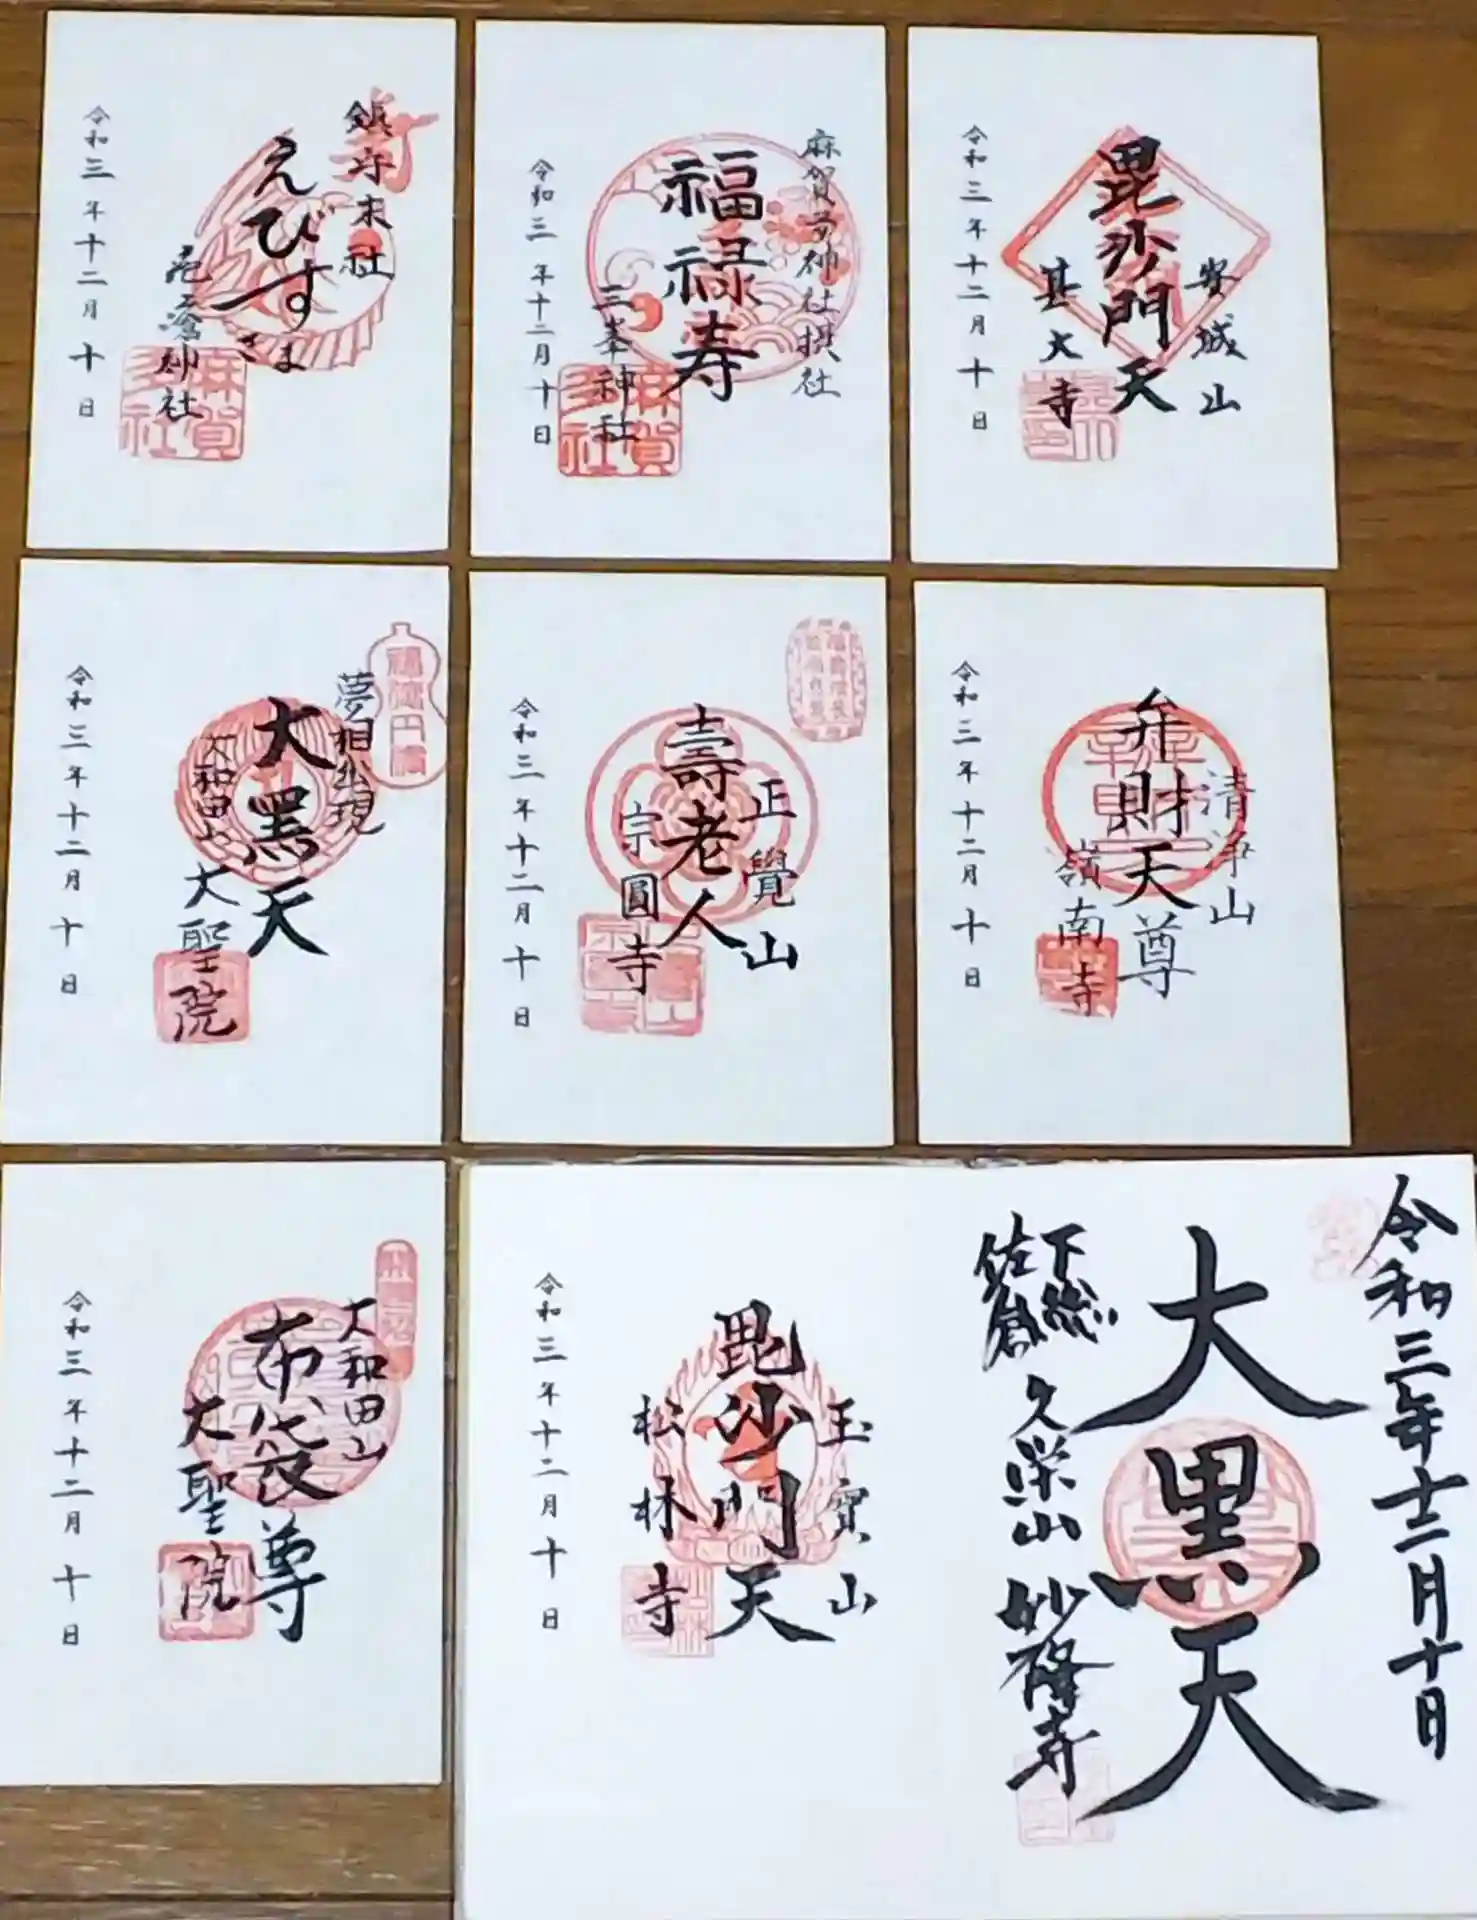 鎮守末社
えびすさま
神社
令和三年十二月十日
麻賀多社
麻賀多神社摂社
福禄寿
三峯神社
令和三年十二月十日
麻賀多社
安城山
毘沙門天
甚大寺
令和三年十二月十日
夢相出現
大黒天
大和田山
大聖院
令和三年十二月十日
正覺山
壽老人
宗圓寺
令和三年十二月十日
清浄山
弁財天尊
嶺南寺
令和三年十二月十日
大和田山
布袋尊
大聖院
令和三年十二月十日
玉寳山
毘沙門天
松林寺
令和三年十二月十日
令和三年十二月十日
大黒天
下総
佐倉
久栄山
妙隆寺